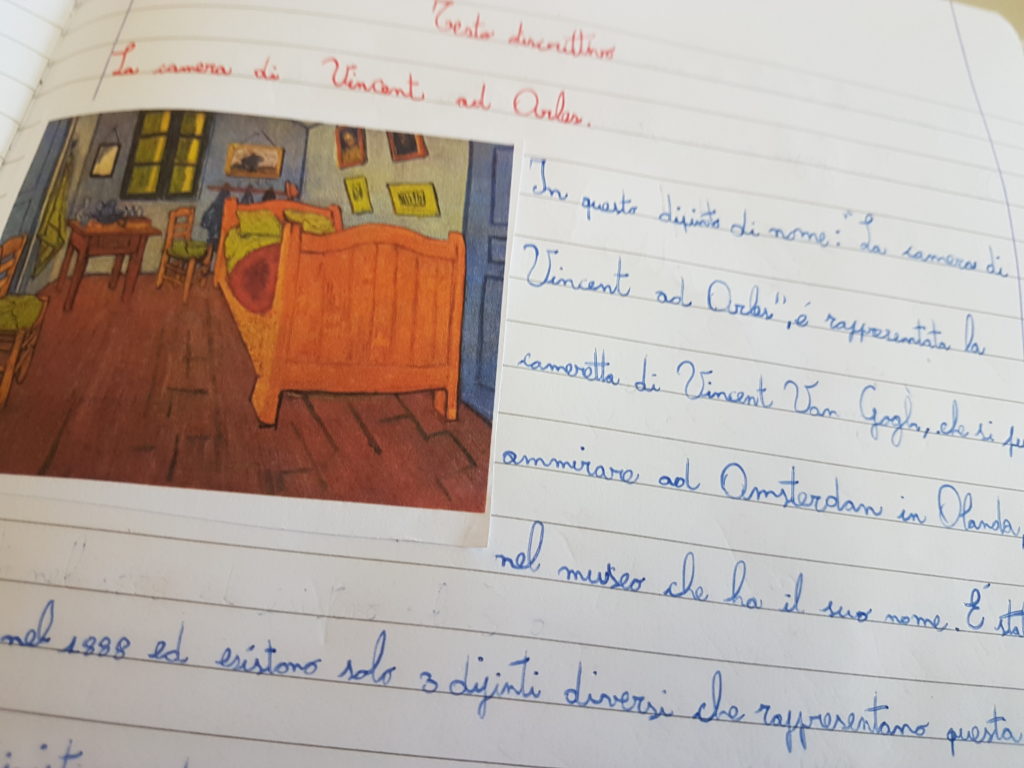 Testo discrittivo
La camera di Vincent ad Arles.
In questo dipinto di nome: "La camera di
Vincent ad Arles", é rappresentata la
cameretta di Vincent Van Gogh, che si
ammirare ad Amsterdan in Olanda,
nel museo che ha il suo nome. É
nel 1888 ed esistono solo 3 dipinti diversi che rappresentano questa